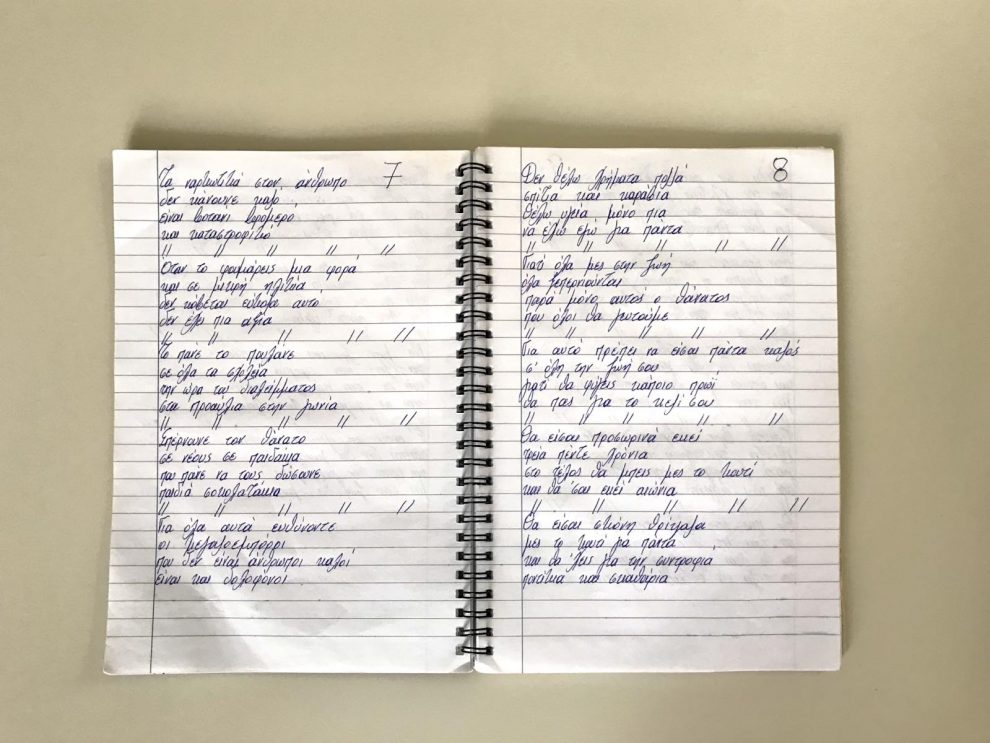 7
Τα ναρκωτικά στον άνθρωπο
δεν κάνουνε καλό
είναι βοτάνι βρομερό
και καταστροφικό
// // // // //
Όταν το φουμάρεις μια φορά
και σε μικρή ηλικία
δεν κόβεται εύκολα αυτό
δεν έχει πια αξία
// // // // //
Το πάνε το πουλάνε
σε όλα τα σχολεία
την ώρα του διαλείμματος
στα προαύλια στην γωνία
// // // // //
Σπέρνουνε τον θάνατο
σε νέους σε παιδάκια
που πάνε να τους δώσουνε
παιδιά σοκολατάκια
// // // // //
Για όλα αυτά ευθύνοντε
οι μεγαλοεμπόροι
που δεν είναι άνθρωποι καλοί
είναι και δολοφόνοι
8
Δεν θέλω χρήματα πολλά
σπίτια και καράβια
θέλω υγεία μόνο πια
να έχω εγώ για πάντα
// // // // //
Γιατί όλα μες στην ζωή
όλα ξεπερνιούνται
παρά μόνο αυτός ο θάνατος
που όλοι θα
// // // // //
Για αυτό πρέπει να είσαι πάντα καλός
σ' όλη την ζωή σου
γιατί θα φύγεις κάποιο πρωί
θα πας για το κελί σου
// // // // //
Θα είσαι προσωρινά εκεί
τρεία πέντε χρόνια
στο τέλος θα μπεις μες το κουτί
και θα 'σαι εκεί αιώνια
// // // // //
Θα είσαι σκόνη
μες το κουτί για πάντα
και θα 'χεις για την συντροφιά
ποντίκια και σκαθάρια